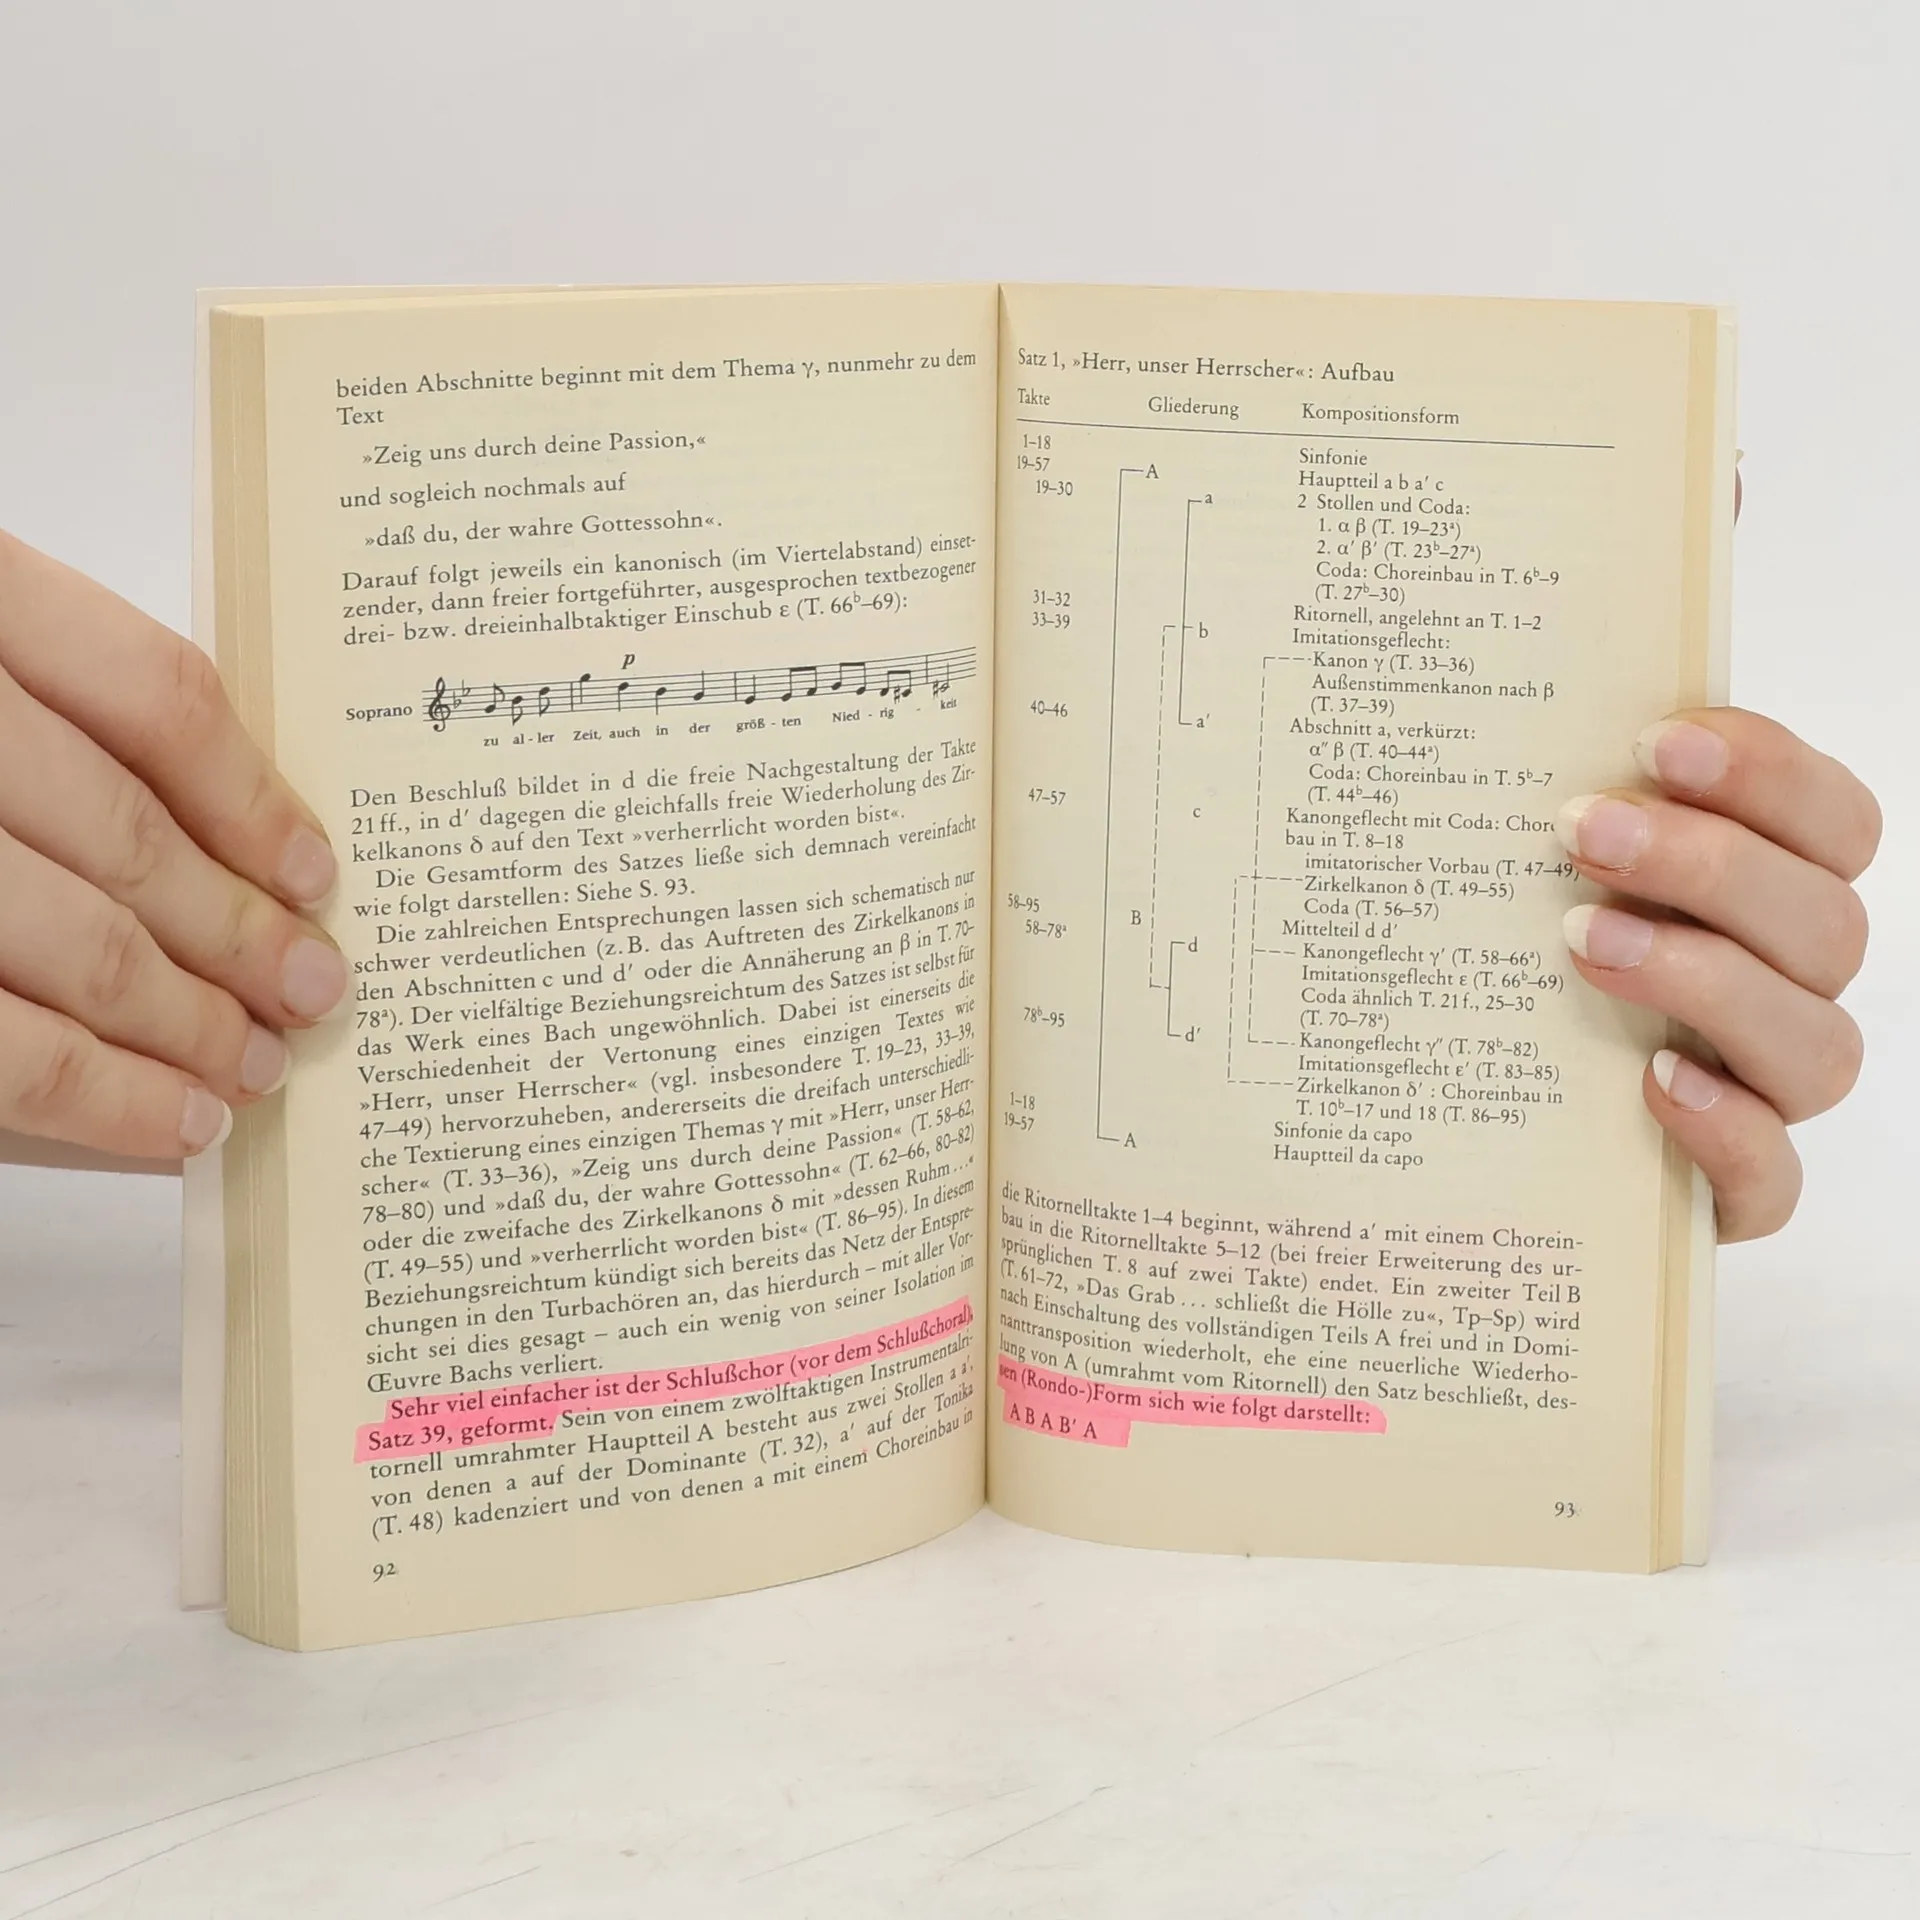 beiden Abschnitte beginnt mit dem Thema γ, nunmehr zu dem
Text
»Zeig uns durch deine Passion,«
und sogleich nochmals auf
»daß du, der wahre Gottessohn«.
Darauf folgt jeweils ein kanonisch (im Viertelabstand) einset-
zender, dann freier fortgeführter, ausgesprochen textbezogener
drei- bzw. dreieinhalbtaktiger Einschub ε (T. 66ᵇ–69):
p
Soprano
zu al - ler Zeit, auch in der größ - ten Nied - rig - keit
Den Beschluß bildet in d die freie Nachgestaltung der Takte
21 ff., in d′ dagegen die gleichfalls freie Wiederholung des Zir-
kelkanons δ auf den Text »verherrlicht worden bist«.
Die Gesamtform des Satzes ließe sich demnach vereinfacht
wie folgt darstellen: Siehe S. 93.
Die zahlreichen Entsprechungen lassen sich schematisch nur
schwer verdeutlichen (z. B. das Auftreten des Zirkelkanons in
den Abschnitten c und d′ oder die Annäherung an β in T. 70-
78ᵃ). Der vielfältige Beziehungsreichtum des Satzes ist selbst für
das Werk eines Bach ungewöhnlich. Dabei ist einerseits die
Verschiedenheit der Vertonung eines einzigen Textes wie
»Herr, unser Herrscher« (vgl. insbesondere T. 19–23, 33–39,
47–49) hervorzuheben, andererseits die dreifach unterschiedli-
che Textierung eines einzigen Themas γ mit »Herr, unser Herr-
scher« (T. 33–36), »Zeig uns durch deine Passion« (T. 58–62,
78–80) und »daß du, der wahre Gottessohn« (T. 62–66, 80–82)
oder die zweifache des Zirkelkanons δ mit »dessen Ruhm ...«
(T. 49–55) und »verherrlicht worden bist« (T. 86–95). In diesem
Beziehungsreichtum kündigt sich bereits das Netz der Entspre-
chungen in den Turbachören an, das hierdurch – mit aller Vor-
sicht sei dies gesagt – auch ein wenig von seiner Isolation im
Œuvre Bachs verliert.
Sehr viel einfacher ist der Schlußchor (vor dem Schlußchoral),
Satz 39, geformt. Sein von einem zwölftaktigen Instrumentalri-
tornell umrahmter Hauptteil A besteht aus zwei Stollen a a′,
von denen a auf der Dominante (T. 32), a′ auf der Tonika
(T. 48) kadenziert und von denen a mit einem Choreinbau in
92
Satz 1, »Herr, unser Herrscher«: Aufbau
Takte Gliederung Kompositionsform
1–18 Sinfonie
19–57 A Hauptteil a b a′ c
19–30 a 2 Stollen und Coda:
1. α β (T. 19–23ᵃ)
2. α′ β′ (T. 23ᵇ–27ᵃ)
Coda: Choreinbau in T. 6ᵇ–9
(T. 27ᵇ–30)
31–32 Ritornell, angelehnt an T. 1–2
33–39 b Imitationsgeflecht:
Kanon γ (T. 33–36)
Außenstimmenkanon nach β
(T. 37–39)
40–46 a′ Abschnitt a, verkürzt:
α″ β (T. 40–44ᵃ)
Coda: Choreinbau in T. 5ᵇ–7
(T. 44ᵇ–46)
47–57 c Kanongeflecht mit Coda: Chore
bau in T. 8–18
imitatorischer Vorbau (T. 47–49)
Zirkelkanon δ (T. 49–55)
Coda (T. 56–57)
58–95 B Mittelteil d d′
58–78ᵃ d Kanongeflecht γ′ (T. 58–66ᵃ)
Imitationsgeflecht ε (T. 66ᵇ–69)
Coda ähnlich T. 21 f., 25–30
(T. 70–78ᵃ)
78ᵇ–95 d′ Kanongeflecht γ″ (T. 78ᵇ–82)
Imitationsgeflecht ε′ (T. 83–85)
Zirkelkanon δ′ : Choreinbau in
T. 10ᵇ–17 und 18 (T. 86–95)
1–18 Sinfonie da capo
19–57 A Hauptteil da capo
die Ritornelltakte 1–4 beginnt, während a′ mit einem Chorein-
bau in die Ritornelltakte 5–12 (bei freier Erweiterung des ur-
sprünglichen T. 8 auf zwei Takte) endet. Ein zweiter Teil B
(T. 61–72, »Das Grab ... schließt die Hölle zu«, Tp–Sp) wird
nach Einschaltung des vollständigen Teils A frei und in Domi-
nanttransposition wiederholt, ehe eine neuerliche Wiederho-
lung von A (umrahmt vom Ritornell) den Satz beschließt, des-
sen (Rondo-)Form sich wie folgt darstellt:
A B A B′ A
93